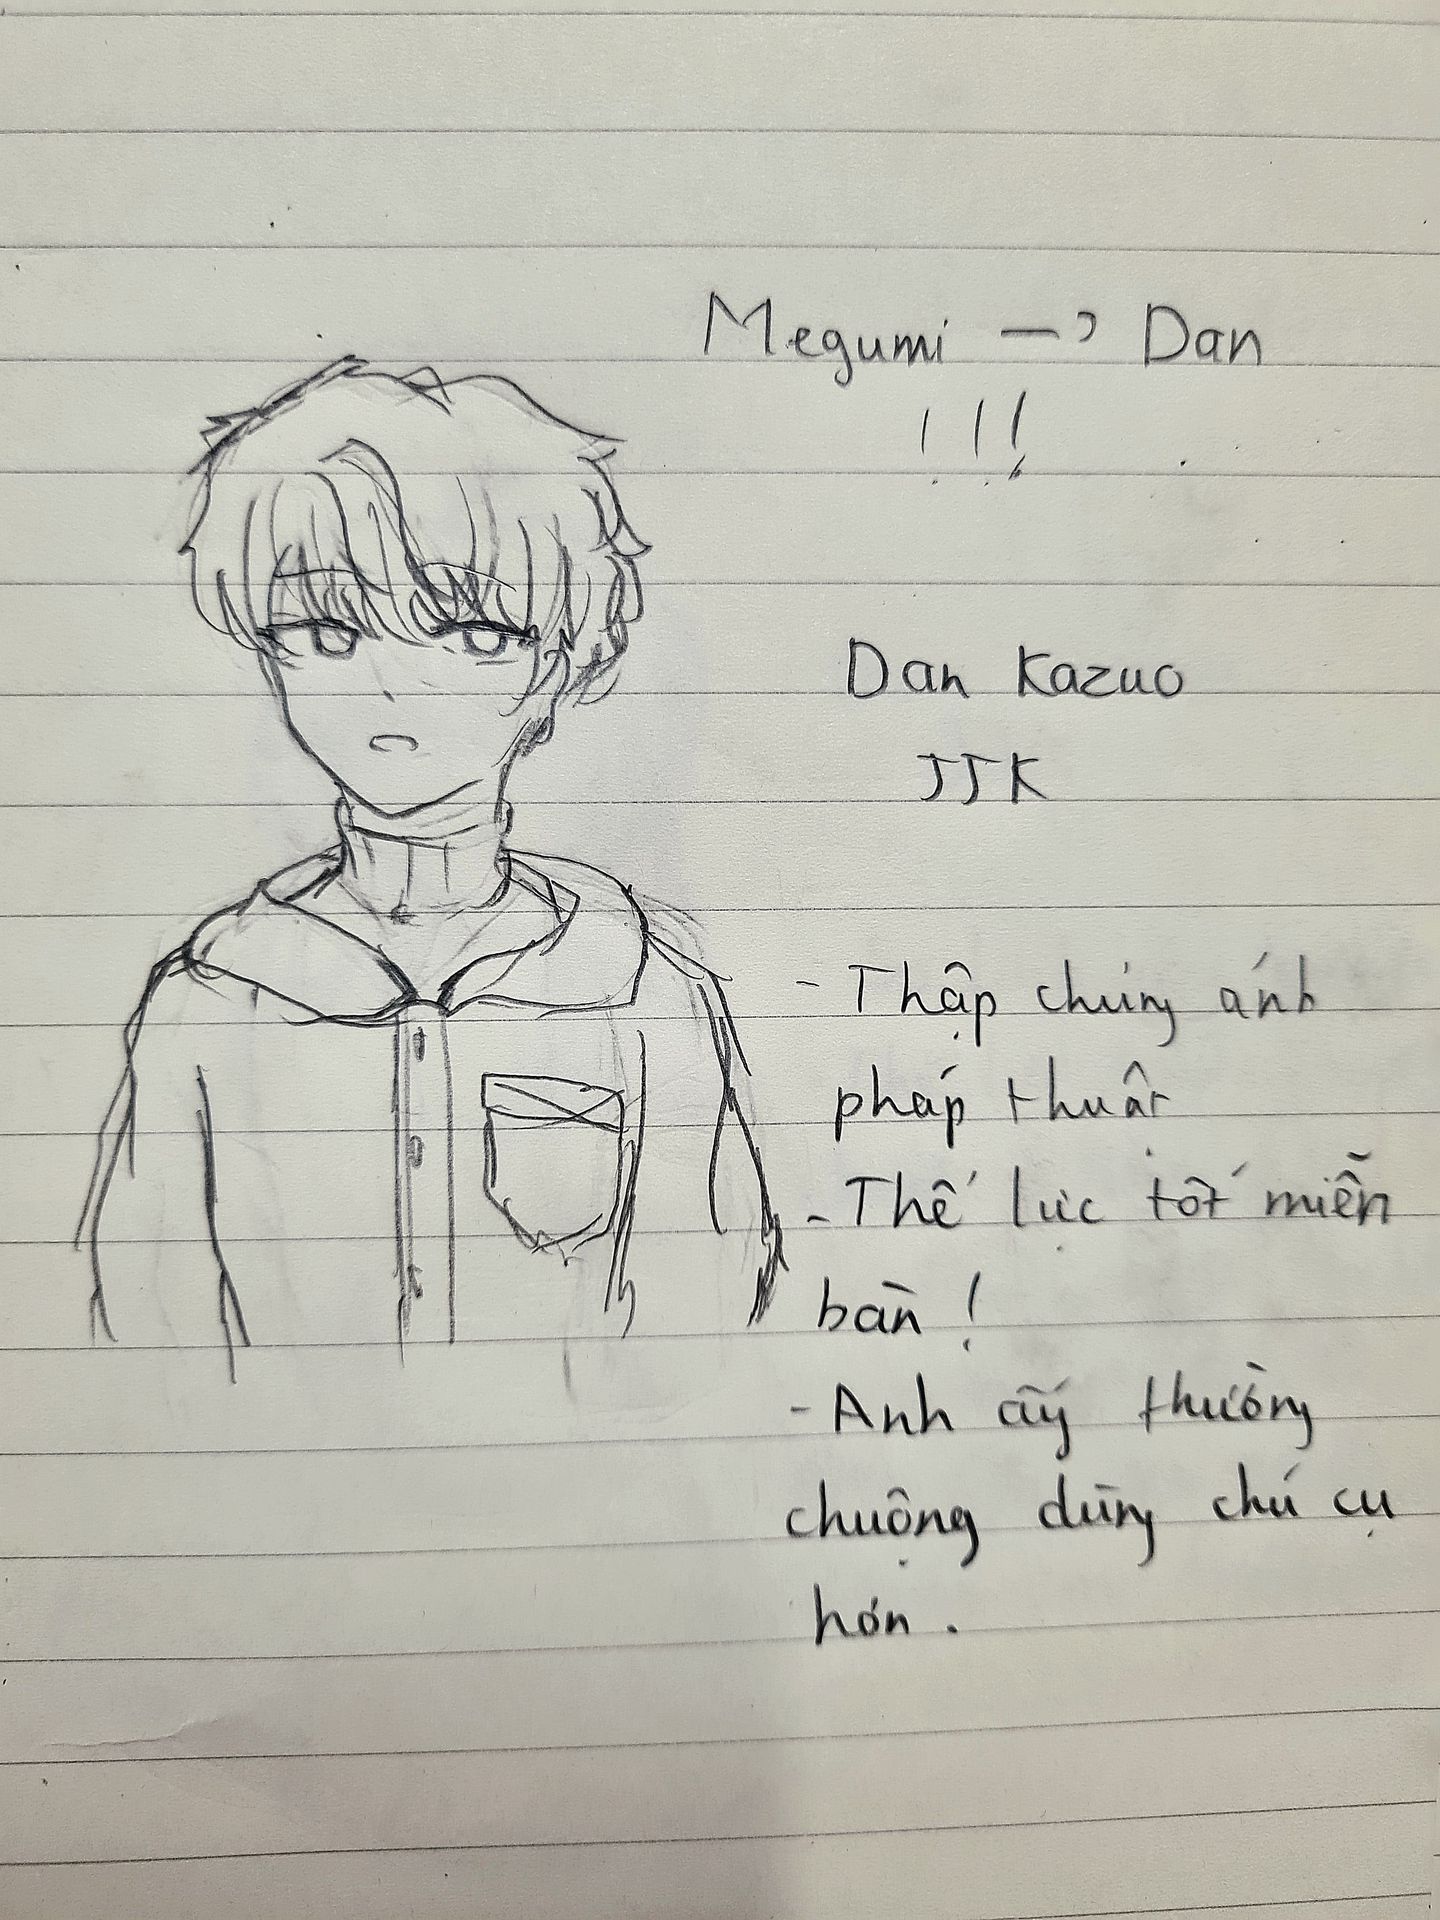 Megumi → Dan
!!!
Dan Kazuo
JJK
- Thập chủng ánh
pháp thuật
- Thế lực tốt miễn
bàn !
- Anh ấy thường
chuộng dùng chú cụ
hơn .